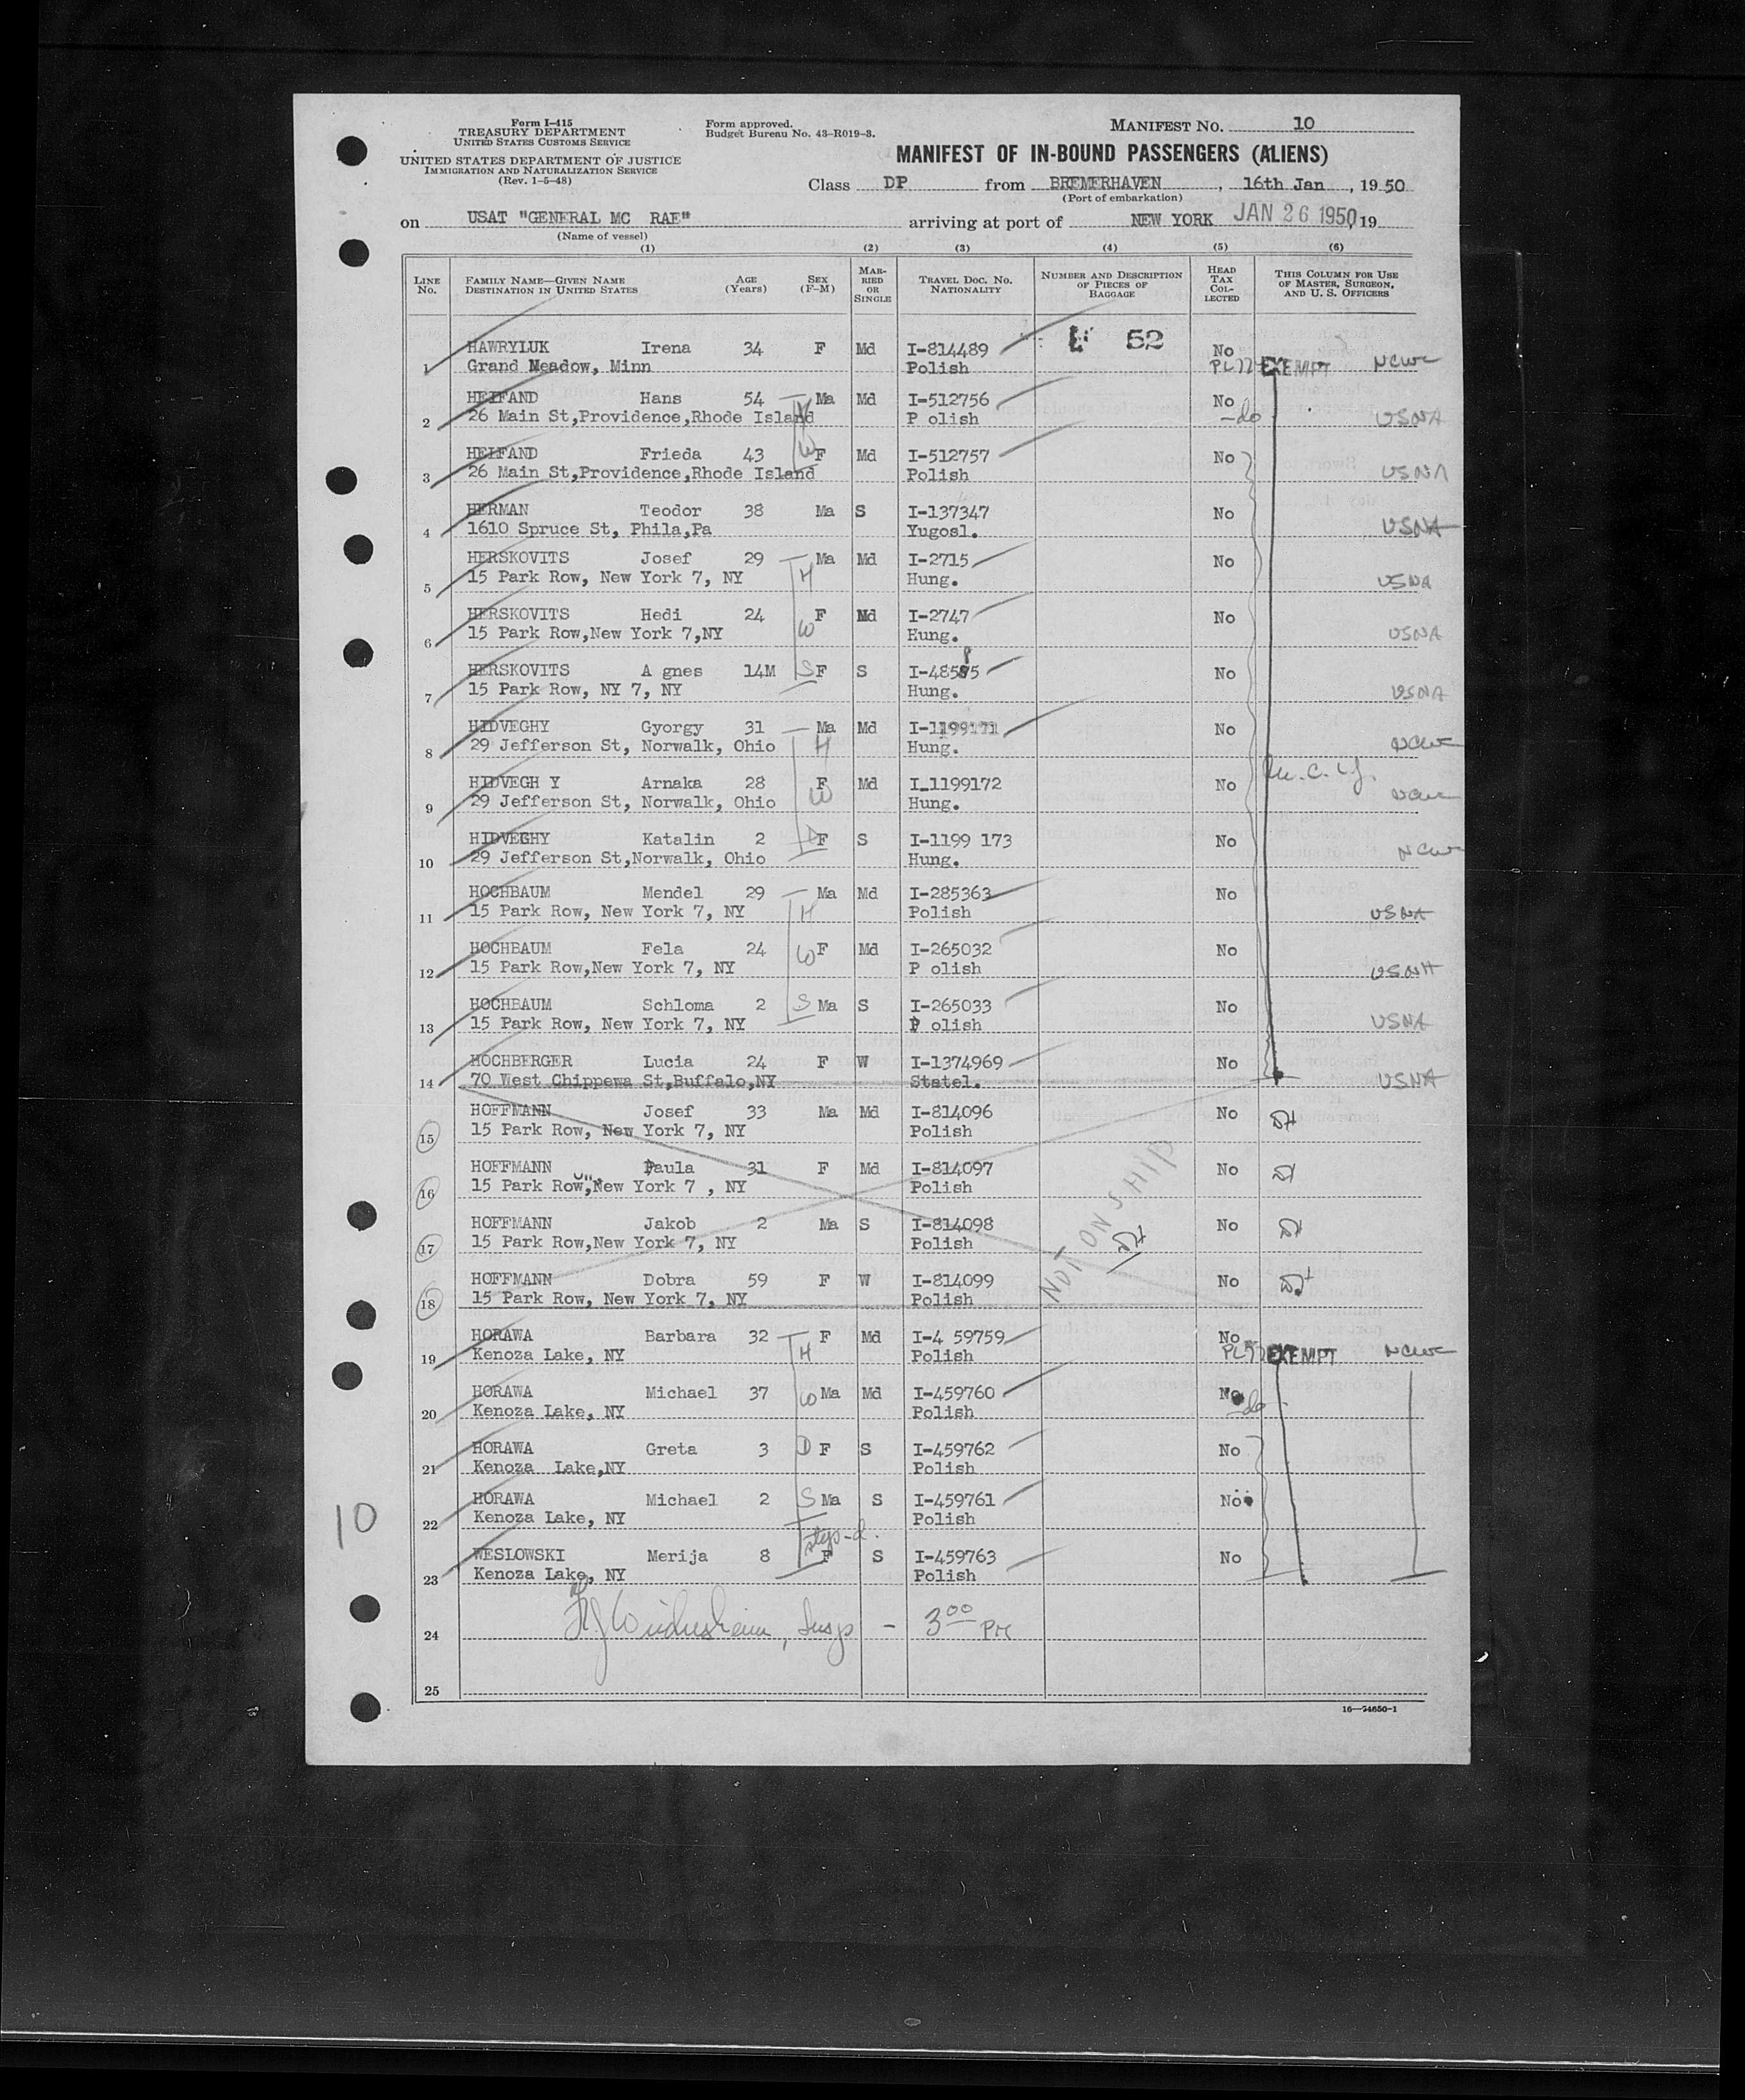 Form I-415
TREASURY DEPARTMENT
UNITED STATES CUSTOMS SERVICE
UNITED STATES DEPARTMENT OF JUSTICE
IMMIGRATION AND NATURALIZATION SERVICE
(Rev. 1-5-48)
Form approved.
Budget Bureau No. 43-R019-3.
MANIFEST NO. 10
MANIFEST OF IN-BOUND PASSENGERS (ALIENS)
Class DP from BREMERHAVEN, 16th Jan, 1950
(Port of embarkation)
on USAT "GENERAL MC RAE" arriving at port of NEW YORK JAN 26 1950, 19
(Name of vessel)
(1) (2) (3) (4) (5) (6)
LINE No. FAMILY NAME—GIVEN NAME DESTINATION IN UNITED STATES AGE (Years) SEX (F-M) MARRIED OR SINGLE TRAVEL DOC. NO. NATIONALITY NUMBER AND DESCRIPTION OF PIECES OF BAGGAGE HEAD TAX COLLECTED THIS COLUMN FOR USE OF MASTER, SURGEON, AND U. S. OFFICERS
HAWRYLUK Irena 34 F Md I-814489 52 No
1 Grand Meadow, Minn Polish EXEMPT NCWC
HELFAND Hans 54 Ma Md I-512756 No
2 26 Main St,Providence,Rhode Island P olish -do- USNA
HELFAND Frieda 43 W F Md I-512757 No
3 26 Main St,Providence,Rhode Island Polish USNA
HERMAN Teodor 38 Ma S I-137347 No
4 1610 Spruce St, Phila,Pa Yugosl. USNA
HERSKOVITS Josef 29 Ma Md I-2715 No
5 15 Park Row, New York 7, NY H Hung. USNA
HERSKOVITS Hedi 24 F Md I-2747 No
6 15 Park Row,New York 7,NY W Hung. USNA
HERSKOVITS A gnes 14M S F S I-48585 No
7 15 Park Row, NY 7, NY Hung. USNA
HIDVEGHY Gyorgy 31 Ma Md I-1199171 No
8 29 Jefferson St, Norwalk, Ohio H Hung. NCWC
HIDVEGH Y Arnaka 28 F Md I_1199172 No
9 29 Jefferson St, Norwalk, Ohio W Hung. NCWC
HIDVEGHY Katalin 2 D F S I-1199 173 No
10 29 Jefferson St,Norwalk, Ohio Hung. NCWC
HOCHBAUM Mendel 29 Ma Md I-285363 No
11 15 Park Row, New York 7, NY H Polish USNA
HOCHBAUM Fela 24 W F Md I-265032 No
12 15 Park Row,New York 7, NY P olish USNA
HOCHBAUM Schloma 2 S Ma S I-265033 No
13 15 Park Row, New York 7, NY P olish USNA
HOCHBERGER Lucia 24 F W I-1374969 No
14 70 West Chippewa St,Buffalo,NY Statel. USNA
HOFFMANN Josef 33 Ma Md I-814096 No
15 15 Park Row, New York 7, NY Polish
HOFFMANN Paula 31 F Md I-814097 No
16 15 Park Row,New York 7 , NY Polish
HOFFMANN Jakob 2 Ma S I-814098 No
17 15 Park Row,New York 7, NY Polish
HOFFMANN Dobra 59 F W I-814099 No
18 15 Park Row, New York 7, NY Polish
NOT ON SHIP
HORAWA Barbara 32 F Md I-4 59759 No
19 Kenoza Lake, NY H Polish EXEMPT NCWC
HORAWA Michael 37 W Ma Md I-459760 No
20 Kenoza Lake, NY Polish -do-
HORAWA Greta 3 D F S I-459762 No
21 Kenoza Lake,NY Polish
HORAWA Michael 2 S Ma S I-459761 No
22 Kenoza Lake, NY Polish
step-d.
WESLOWSKI Merija 8 F S I-459763 No
23 Kenoza Lake, NY Polish
24 Insp - 3 00 PM
25
16—54650-1
10